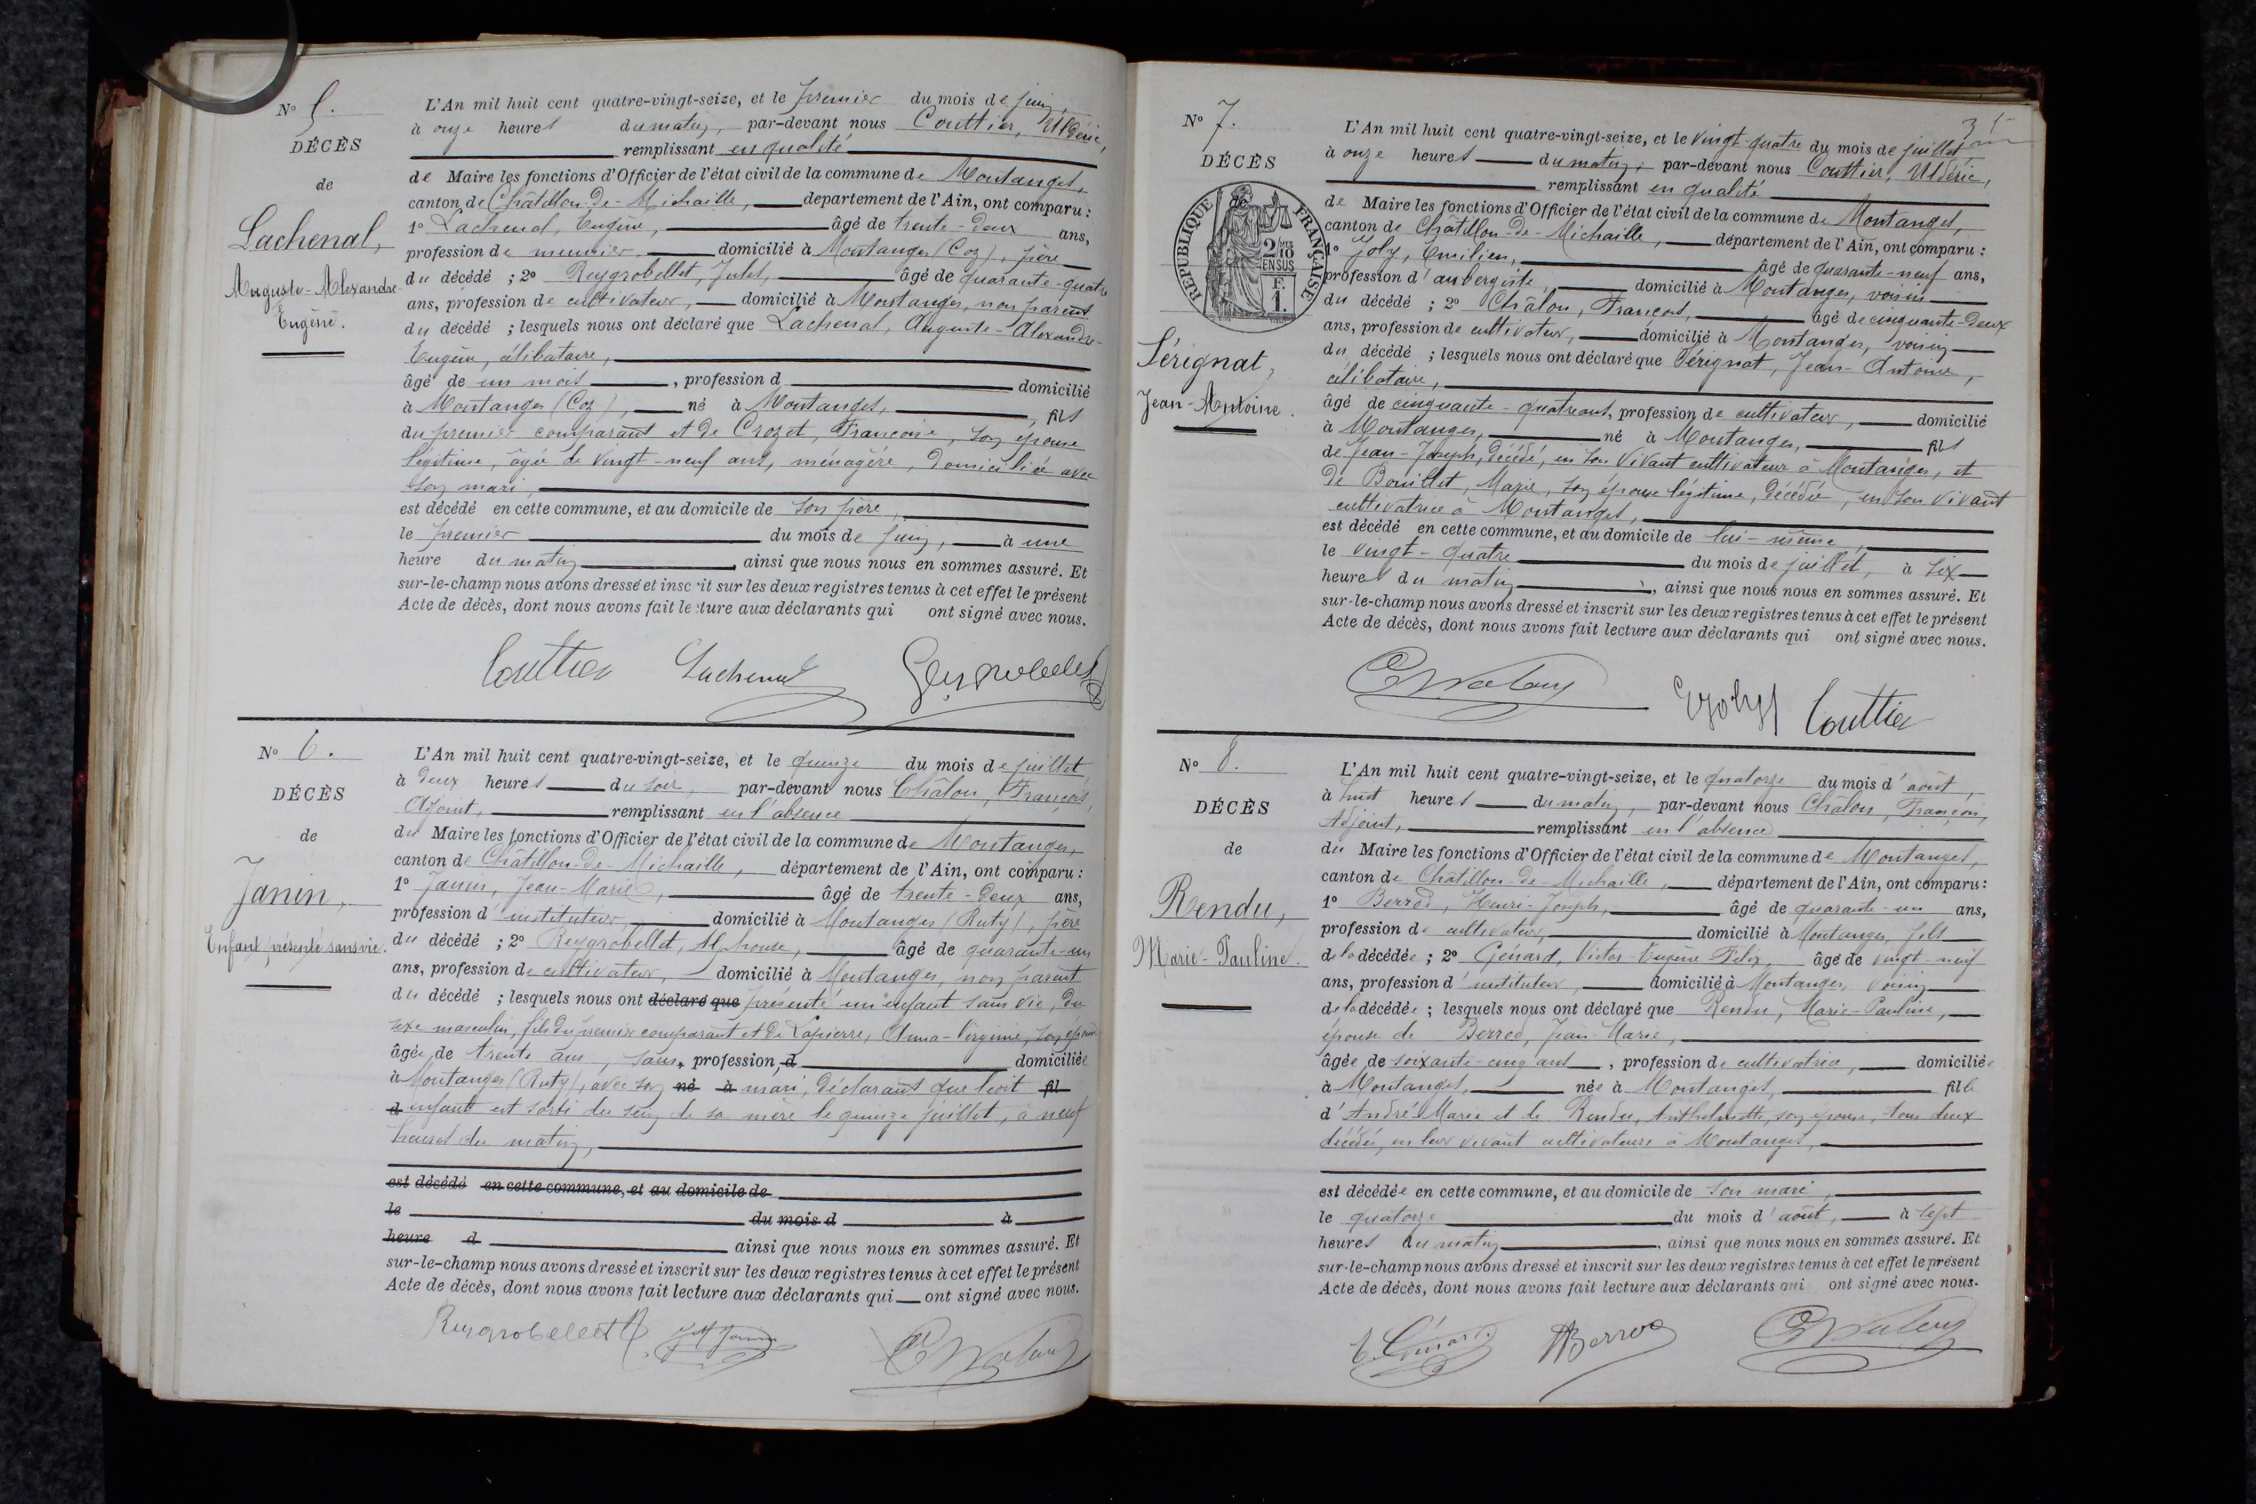 N° 5.
DÉCÈS
de
Lachenal,
Auguste-Alexandre-
Eugène.
L'An mil huit cent quatre-vingt-seize, et le premier du mois de juin,
à onze heures du matin, par-devant nous Couttier, Uldéric,
remplissant en qualité
de Maire les fonctions d'Officier de l'état civil de la commune de Montanges,
canton de Châtillon-de-Michaille, département de l'Ain, ont comparu :
1° Lachenal, Eugène, âgé de trente-deux ans,
profession de meunier, domicilié à Montanges (Coz), père
du décédé ; 2° Reygrobellet, Jules, âgé de quarante-quatre
ans, profession de cultivateur, domicilié à Montanges, non parent
du décédé ; lesquels nous ont déclaré que Lachenal, Auguste-Alexandre-
Eugène, célibataire,
âgé de un mois, profession d domicilié
à Montanges (Coz), né à Montanges, fils
du premier comparant et de Crozet, Françoise, son épouse
légitime, âgée de vingt-neuf ans, ménagère, domiciliée avec
son mari,
est décédé en cette commune, et au domicile de son père,
le premier du mois de juin, à une
heure du matin, ainsi que nous nous en sommes assuré. Et
sur-le-champ nous avons dressé et inscrit sur les deux registres tenus à cet effet le présent
Acte de décès, dont nous avons fait lecture aux déclarants qui ont signé avec nous.
Couttier Lachenal Reygrobellet
N° 6.
DÉCÈS
de
Janin,
Enfant présenté sans vie.
L'An mil huit cent quatre-vingt-seize, et le quinze du mois de juillet,
à deux heures du soir, par-devant nous Châlon, François,
Adjoint, remplissant en l'absence
du Maire les fonctions d'Officier de l'état civil de la commune de Montanges,
canton de Châtillon-de-Michaille, département de l'Ain, ont comparu :
1° Janin, Jean-Marie, âgé de trente-deux ans,
profession d'instituteur, domicilié à Montanges (Ruty), père
du décédé ; 2° Reygrobellet, Alphonse, âgé de quarante-un
ans, profession de cultivateur, domicilié à Montanges, non parent
du décédé ; lesquels nous ont déclaré que présenté un enfant sans vie, du
sexe masculin, fils du premier comparant et de Lapierre, Anna-Virginie, son épouse
âgée de trente ans, sans profession, d domiciliée
à Montanges (Ruty), avec son né à mari, déclarant que ledit fil
d enfant est sorti du sein de sa mère le quinze juillet, à neuf
heures du matin,
est décédé en cette commune, et au domicile de
le du mois d à
heure d ainsi que nous nous en sommes assuré. Et
sur-le-champ nous avons dressé et inscrit sur les deux registres tenus à cet effet le présent
Acte de décès, dont nous avons fait lecture aux déclarants qui ont signé avec nous.
Reygrobellet A J M Janin
35
N° 7.
DÉCÈS
de
RÉPUBLIQUE FRANÇAISE
2/10 EN SUS
F. 1.
Sérignat,
Jean-Antoine.
L'An mil huit cent quatre-vingt-seize, et le vingt-quatre du mois de juillet
à onze heures du matin, par-devant nous Couttier, Uldéric,
remplissant en qualité
de Maire les fonctions d'Officier de l'état civil de la commune de Montanges,
canton de Châtillon-de-Michaille, département de l'Ain, ont comparu :
1° Joly, Emilien, âgé de quarante-neuf ans,
profession d'aubergiste, domicilié à Montanges, voisin
du décédé ; 2° Châlon, François, âgé de cinquante-deux
ans, profession de cultivateur, domicilié à Montanges, voisin
du décédé ; lesquels nous ont déclaré que Sérignat, Jean-Antoine,
célibataire,
âgé de cinquante-quatre ans, profession de cultivateur, domicilié
à Montanges, né à Montanges, fils
de Jean-Joseph, décédé, en son vivant cultivateur à Montanges, et
de Bouillet, Marie, son épouse légitime, décédée, en son vivant
cultivatrice à Montanges,
est décédé en cette commune, et au domicile de lui-même,
le vingt-quatre du mois de juillet, à six
heures du matin, ainsi que nous nous en sommes assuré. Et
sur-le-champ nous avons dressé et inscrit sur les deux registres tenus à cet effet le présent
Acte de décès, dont nous avons fait lecture aux déclarants qui ont signé avec nous.
E Joly Couttier
N° 8.
DÉCÈS
de
Rendu,
Marie-Pauline.
L'An mil huit cent quatre-vingt-seize, et le quatorze du mois d'août,
à huit heures du matin, par-devant nous Châlon, François,
Adjoint, remplissant en l'absence
du Maire les fonctions d'Officier de l'état civil de la commune de Montanges,
canton de Châtillon-de-Michaille, département de l'Ain, ont comparu :
1° Berrod, Henri-Joseph, âgé de quarante-un ans,
profession de cultivateur, domicilié à Montanges, fils
de la décédée ; 2° Génard, Victor-Eugène-Félix, âgé de vingt-neuf
ans, profession d'instituteur, domicilié à Montanges, voisin
de la décédée ; lesquels nous ont déclaré que Rendu, Marie-Pauline,
épouse de Berrod, Jean-Marie,
âgée de soixante-cinq ans, profession de cultivatrice, domiciliée
à Montanges, née à Montanges, fille
d'André-Marie et de Rendu, Anthelmette, son épouse, tous deux
décédés, en leur vivant cultivateurs à Montanges,
est décédée en cette commune, et au domicile de son mari,
le quatorze du mois d'août, à sept
heures du matin, ainsi que nous nous en sommes assuré. Et
sur-le-champ nous avons dressé et inscrit sur les deux registres tenus à cet effet le présent
Acte de décès, dont nous avons fait lecture aux déclarants qui ont signé avec nous.
E. Génard HBerrod